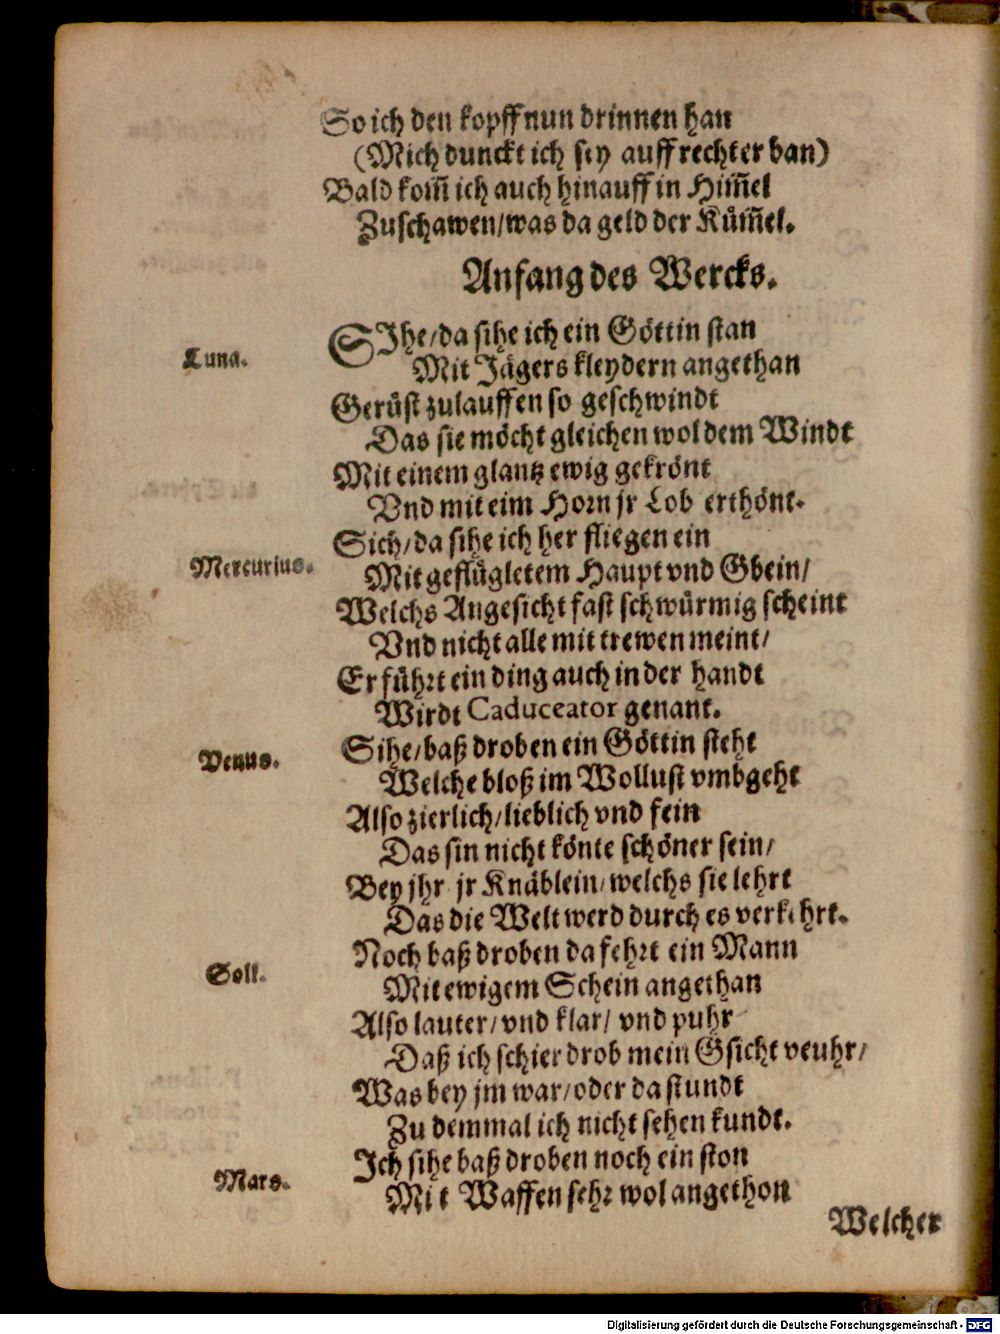 So ich den kopff nun drinnen han
(Mich dunckt ich sey auff rechter ban)
Bald kom̃ ich auch hinauff in Him̃el
Zuschawen/was da geld der Küm̃el.
Anfang des Wercks.
Luna.
SIhe/da sihe ich ein Göttin stan
Mit Jägers kleydern angethan
Gerüst zulauffen so geschwindt
Das sie möcht gleichen wol dem Windt
Mit einem glantz ewig gekrönt
Vnd mit eim Horn jr Lob erthönt.
Sich/da sihe ich her fliegen ein
Mercurius.
Mit geflügletem Haupt vnd Gbein/
Welchs Angesicht fast schwürmig scheint
Vnd nicht alle mit trewen meint/
Er führt ein ding auch in der handt
Wirdt Caduceator genant.
Venus.
Sihe/baß droben ein Göttin steht
Welche bloß im Wollust vmbgeht
Also zierlich/lieblich vnd fein
Das sin nicht könte schöner sein/
Bey jhr jr Knäblein/welchs sie lehrt
Das die Welt werd durch es verkehrt.
Noch baß droben da fehrt ein Mann
Soll.
Mit ewigem Schein angethan
Also lauter/vnd klar/ vnd puhr
Daß ich schier drob mein Gsicht veuhr/
Was bey jm war/oder da stundt
Zu demmal ich nicht sehen kundt.
Ich sihe baß droben noch ein ston
Mars.
Mit Waffen sehr wol angethon
Welcher
Digitalisierung gefördert durch die Deutsche Forschungsgemeinschaft - DFG